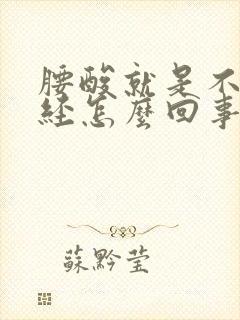 腰酸就是不
经怎麼回事
蘇黔莹